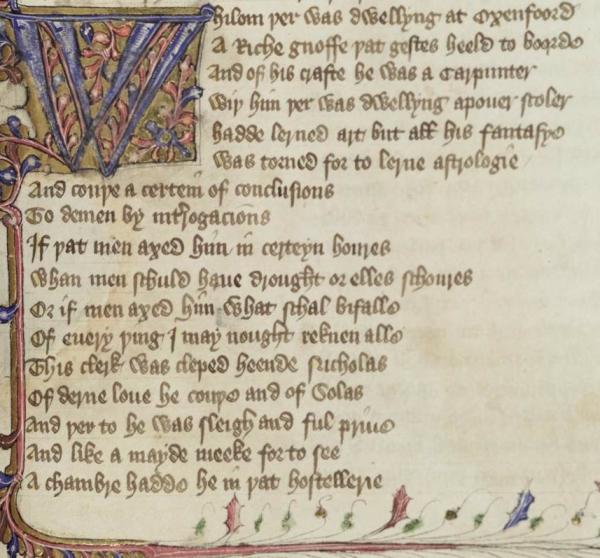 Whilom þer was dwellyng at Oxenfoord
A Riche gnoffe þat gestes heeld to boorde
And of his crafte he was a Carpunter
Wiþ him þer was dwellyng apouer scoler
hadde lerned art but all his fantasye
Was torned for to lerne astrologie
And couþe a certein of conclusions
To demen by introgacions
If þat men axed him in certeyn houres
Whan men schuld haue drought or elles schoures
Or if men axed him what schal bifalle
Of euery þing I may nought reknen alle
This clerk was cleped heende Nicholas
Of derne loue he couþe and of Solas
And þer to he was sleigh and ful priue
And like a mayde meeke for to see
A chambre hadde he in þat hostellerie